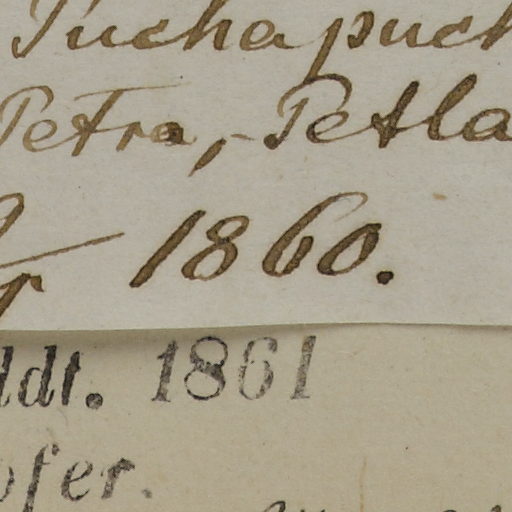 Puchapuch
Petra, Petla
1860.
ldt. 1861
ofer.